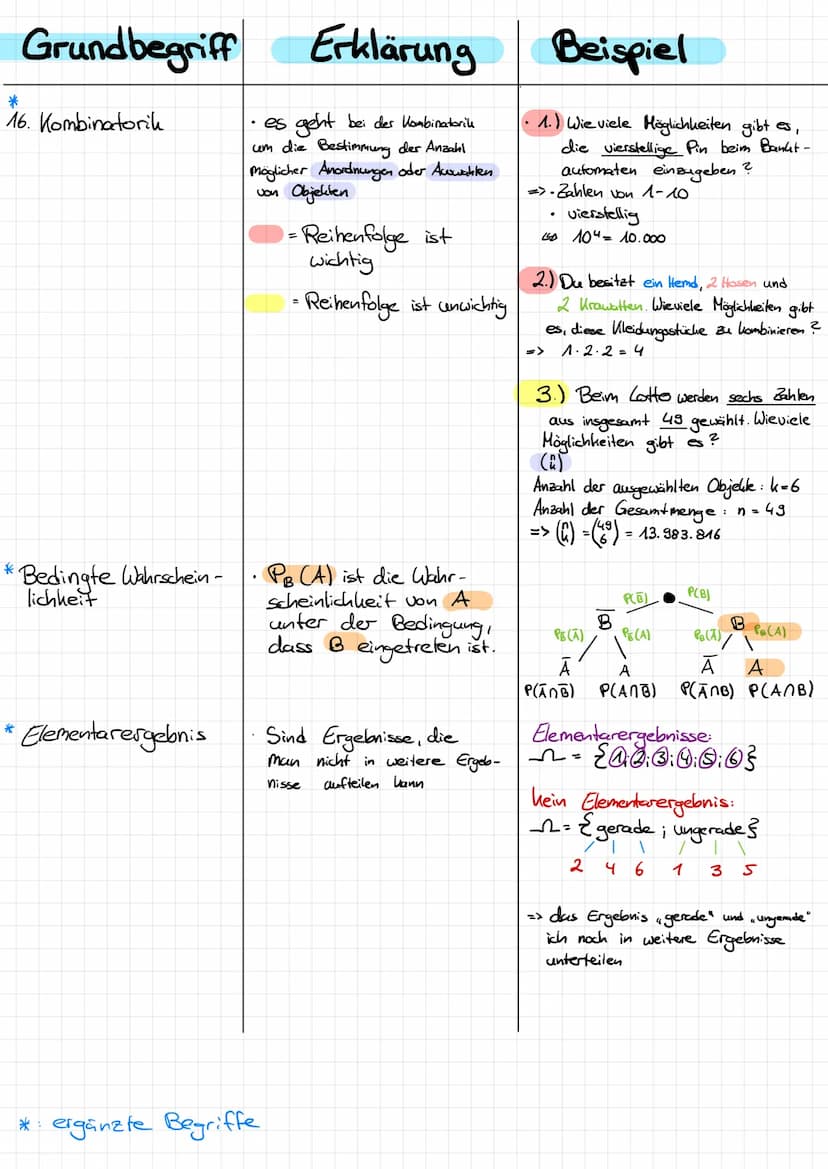 Grundbegriff
Erklärung
Beispiel
*
16. Kombinatorik
· es geht bei der Kombinatorik
um die Bestimmung der Anzahl
möglicher Anordnungen oder Auswahlen
von Objekten
= Reihenfolge ist
wichtig
= Reihenfolge ist unwichtig
· 1.) Wie viele Möglichkeiten gibt es,
die vierstellige Pin beim Bankt-
automaten einzugeben?
=> · Zahlen von 1-10
· vierstellig
↳ 10⁴ = 10.000
2.) Du besitzt ein Hemd, 2 Hosen und
2 Krawatten. Wieviele Möglichkeiten gibt
es, diese Kleidungsstücke zu kombinieren?
=> 1·2·2 = 4
3.) Beim Lotto werden sechs Zahlen
aus insgesamt 49 gewählt. Wieviele
Möglichkeiten gibt es?
(n k)
Anzahl der ausgewählten Objekte: k=6
Anzahl der Gesamtmenge: n = 49
=> (n k) = (49 6) = 13.983.816
* Bedingte Wahrschein-
lichkeit
· P_B(A) ist die Wahr-
scheinlichkeit von A
unter der Bedingung,
dass B eingetreten ist.
P(B̅) P(B)
B̅ B
P_B̅(A̅) P_B̅(A) P_B(A̅) P_B(A)
A̅ A A̅ A
P(A̅∩B̅) P(A∩B̅) P(A̅∩B) P(A∩B)
* Elementarergebnis
· Sind Ergebnisse, die
man nicht in weitere Ergeb-
nisse aufteilen kann
Elementarergebnisse:
Ω = {1;2;3;4;5;6}
kein Elementarergebnis:
Ω = {gerade ; ungerade}
2 4 6 1 3 5
=> das Ergebnis „gerade" und „ungerade"
ich noch in weitere Ergebnisse
unterteilen
* : ergänzte Begriffe